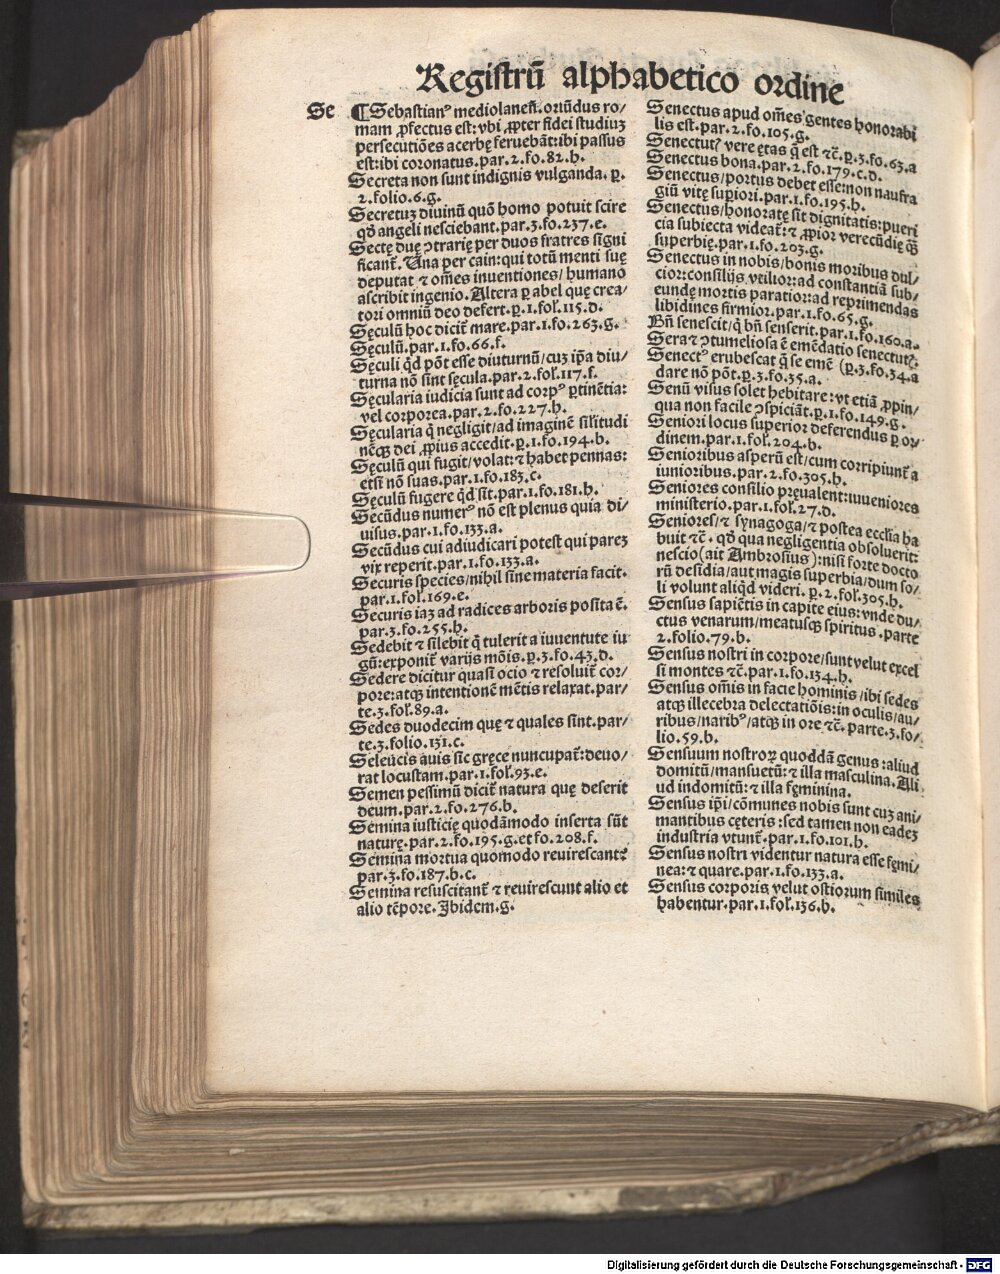 Registrū alphabetico ordine
Se
¶Sebastianꝰ mediolaneñ. oriūdus ro/
mam ꝓfectus est: vbi ꝓpter fidei studiuʒ
persecutiões acerbę feruebāt: ibi passus
est: ibi coronatus. par. 2. fo. 82. h.
Secreta non sunt indignis vulganda. p̲.
2. folio. 6. g.
Secretuʒ diuinū quō homo potuit scire
qđ angeli nesciebant. par. 3. fo. 237. e.
Sectę duę ↄtrarię per duos fratres signi
ficant᷑. Una per cain: qui totū menti suę
deputat ⁊ om̄es inuentiones/ humano
ascribit ingenio. Altera p̲ abel quę crea/
tori omniū deo defert. p̲. 1. fol. 115. d.
Sęculū hoc dicit᷑ mare. par. 1. fo. 263. g.
Sęculū. par. 1. fo. 66. f.
Sęculi qđ pōt esse diuturnū/ cuʒ ip̄a diu/
turna nō sint sęcula. par. 2. fol. 117. f.
Sęcularia iudicia sunt ad corpꝰ p̲tinētia:
vel corporea. par. 2. fo. 227. h.
Sęcularia q̄ negligit/ ad imaginē silitudi
nēqꝫ dei ꝓpius accedit. p̲. 1. fo. 194. b.
Sęculū qui fugit/ volat: ⁊ habet pennas:
etsi nō suas. par. 1. fo. 183. c.
Sęculū fugere qđ sit. par. 1. fo. 181. h.
Secūdus numerꝰ nō est plenus quia di/
uisus. par. 1. fo. 133. a.
Secūdus cui adiudicari potest qui pareʒ
vix reperit. par. 1. fo. 133. a.
Securis species/ nihil sine materia facit.
par. 1. fol. 169. e.
Securis iaʒ ad radices arboris posita ē.
par. 3. fo. 255. h.
Sedebit ⁊ silebit q̄ tulerit a iuuentute iu
gū: exponit᷑ varijs mōis. p̲. 3. fo. 43. d.
Sedere dicitur quasi ocio ⁊ resoluit᷑ cor/
pore: atqꝫ intentionē mētis relaxat. par/
te. 3. fol. 89. a.
Sedes duodecim quę ⁊ quales sint. par/
te. 3. folio. 131. c.
Seleucis auis sic gręce nuncupat᷑: deuo/
rat locustam. par. 1. fol. 93. e.
Semen pessimū dicit᷑ natura quę deserit
deum. par. 2. fo. 276. b.
Semina iusticię quodāmodo inserta sūt
naturę. par. 2. fo. 195. g. et fo. 208. f.
Semina mortua quomodo reuirescant?
par. 3. fo. 187. b. c.
Semina resuscitant᷑ ⁊ reuirescunt alio et
alio tēpore. Ibidem. g.
Senectus apud om̄es gentes honorabi
lis est. par. 2. fo. 105. g.
Senectutꝭ verę ętas q̄ est ⁊c̄. p̲. 3. fo. 63. a
Senectus bona. par. 2. fo. 179. c. d.
Senectus/ portus debet esse: non naufra
giū vitę supiori. par. 1. fo. 195. h.
Senectus/ honoratę sit dignitatis: pueri
cia subiecta videat᷑: ⁊ ꝓpior verecūdię q̄ꝫ
superbię. par. 1. fo. 203. g.
Senectus in nobis/ bonis moribus dul/
cior: consilijs vtilior: ad constantiā sub/
eundę mortis paratior: ad reprimendas
libidines firmior. par. 1. fo. 65. g.
Bn̄ senescit/ q̇ bn̄ senserit. par. 1. fo. 160. a.
Sera ⁊ ↄtumeliosa ē emēdatio senectutꝭ.
Senectꝰ erubescat q̄ se emē (p̲. 3. fo. 34. a
dare nō pōt. p̲. 3. fo. 35. a.
Senū visus solet hebitare: vt etiā ꝓpin/
qua non facile ↄspiciāt. p̲. 1. fo. 149. g.
Seniori locus superior deferendus p̲ or/
dinem. par. 1. fol. 204. b.
Senioribus asperū est/ cum corripiunt᷑ a
iunioribus. par. 2. fo. 305. h.
Seniores consilio pręualent: iuueniores
ministerio. par. 1. fol. 27. d.
Seniores/ ⁊ synagoga/ ⁊ postea eccl̄ia ha
buit ⁊c̄. qđ qua negligentia obsoluerit:
nescio (ait Ambrosius): nisi forte docto
rū desidia/ aut magis superbia/ dum so/
li volunt aliqđ videri. p̲. 2. fol. 305. h.
Sensus sapiētis in capite eius: vnde du/
ctus venarum/ meatusqꝫ spiritus. parte
2. folio. 79. b.
Sensus nostri in corpore/ sunt velut excel
si montes ⁊c̄. par. 1. fo. 134. h.
Sensus om̄is in facie hominis/ ibi sedes
atqꝫ illecebra delectatiōis: in oculis/ au/
ribus/ naribꝰ/ atqꝫ in ore ⁊c̄. parte. 3. fo/
lio. 59. b.
Sensuum nostroꝝ quoddā genus: aliud
domitū/ mansuetū: ⁊ illa masculina. Ali
ud indomitū: ⁊ illa fęminina.
Sensus ip̄i/ cōmunes nobis sunt cuʒ ani/
mantibus cęteris: sed tamen non eadeʒ
industria vtunt᷑. par. 1. fo. 101. h.
Sensus nostri videntur natura esse fęmi/
nea: ⁊ quare. par. 1. fo. 133. a.
Sensus corporis velut ostiorum similes
habentur. par. 1. fol. 136. b.
Digitalisierung gefördert durch die Deutsche Forschungsgemeinschaft - DFG